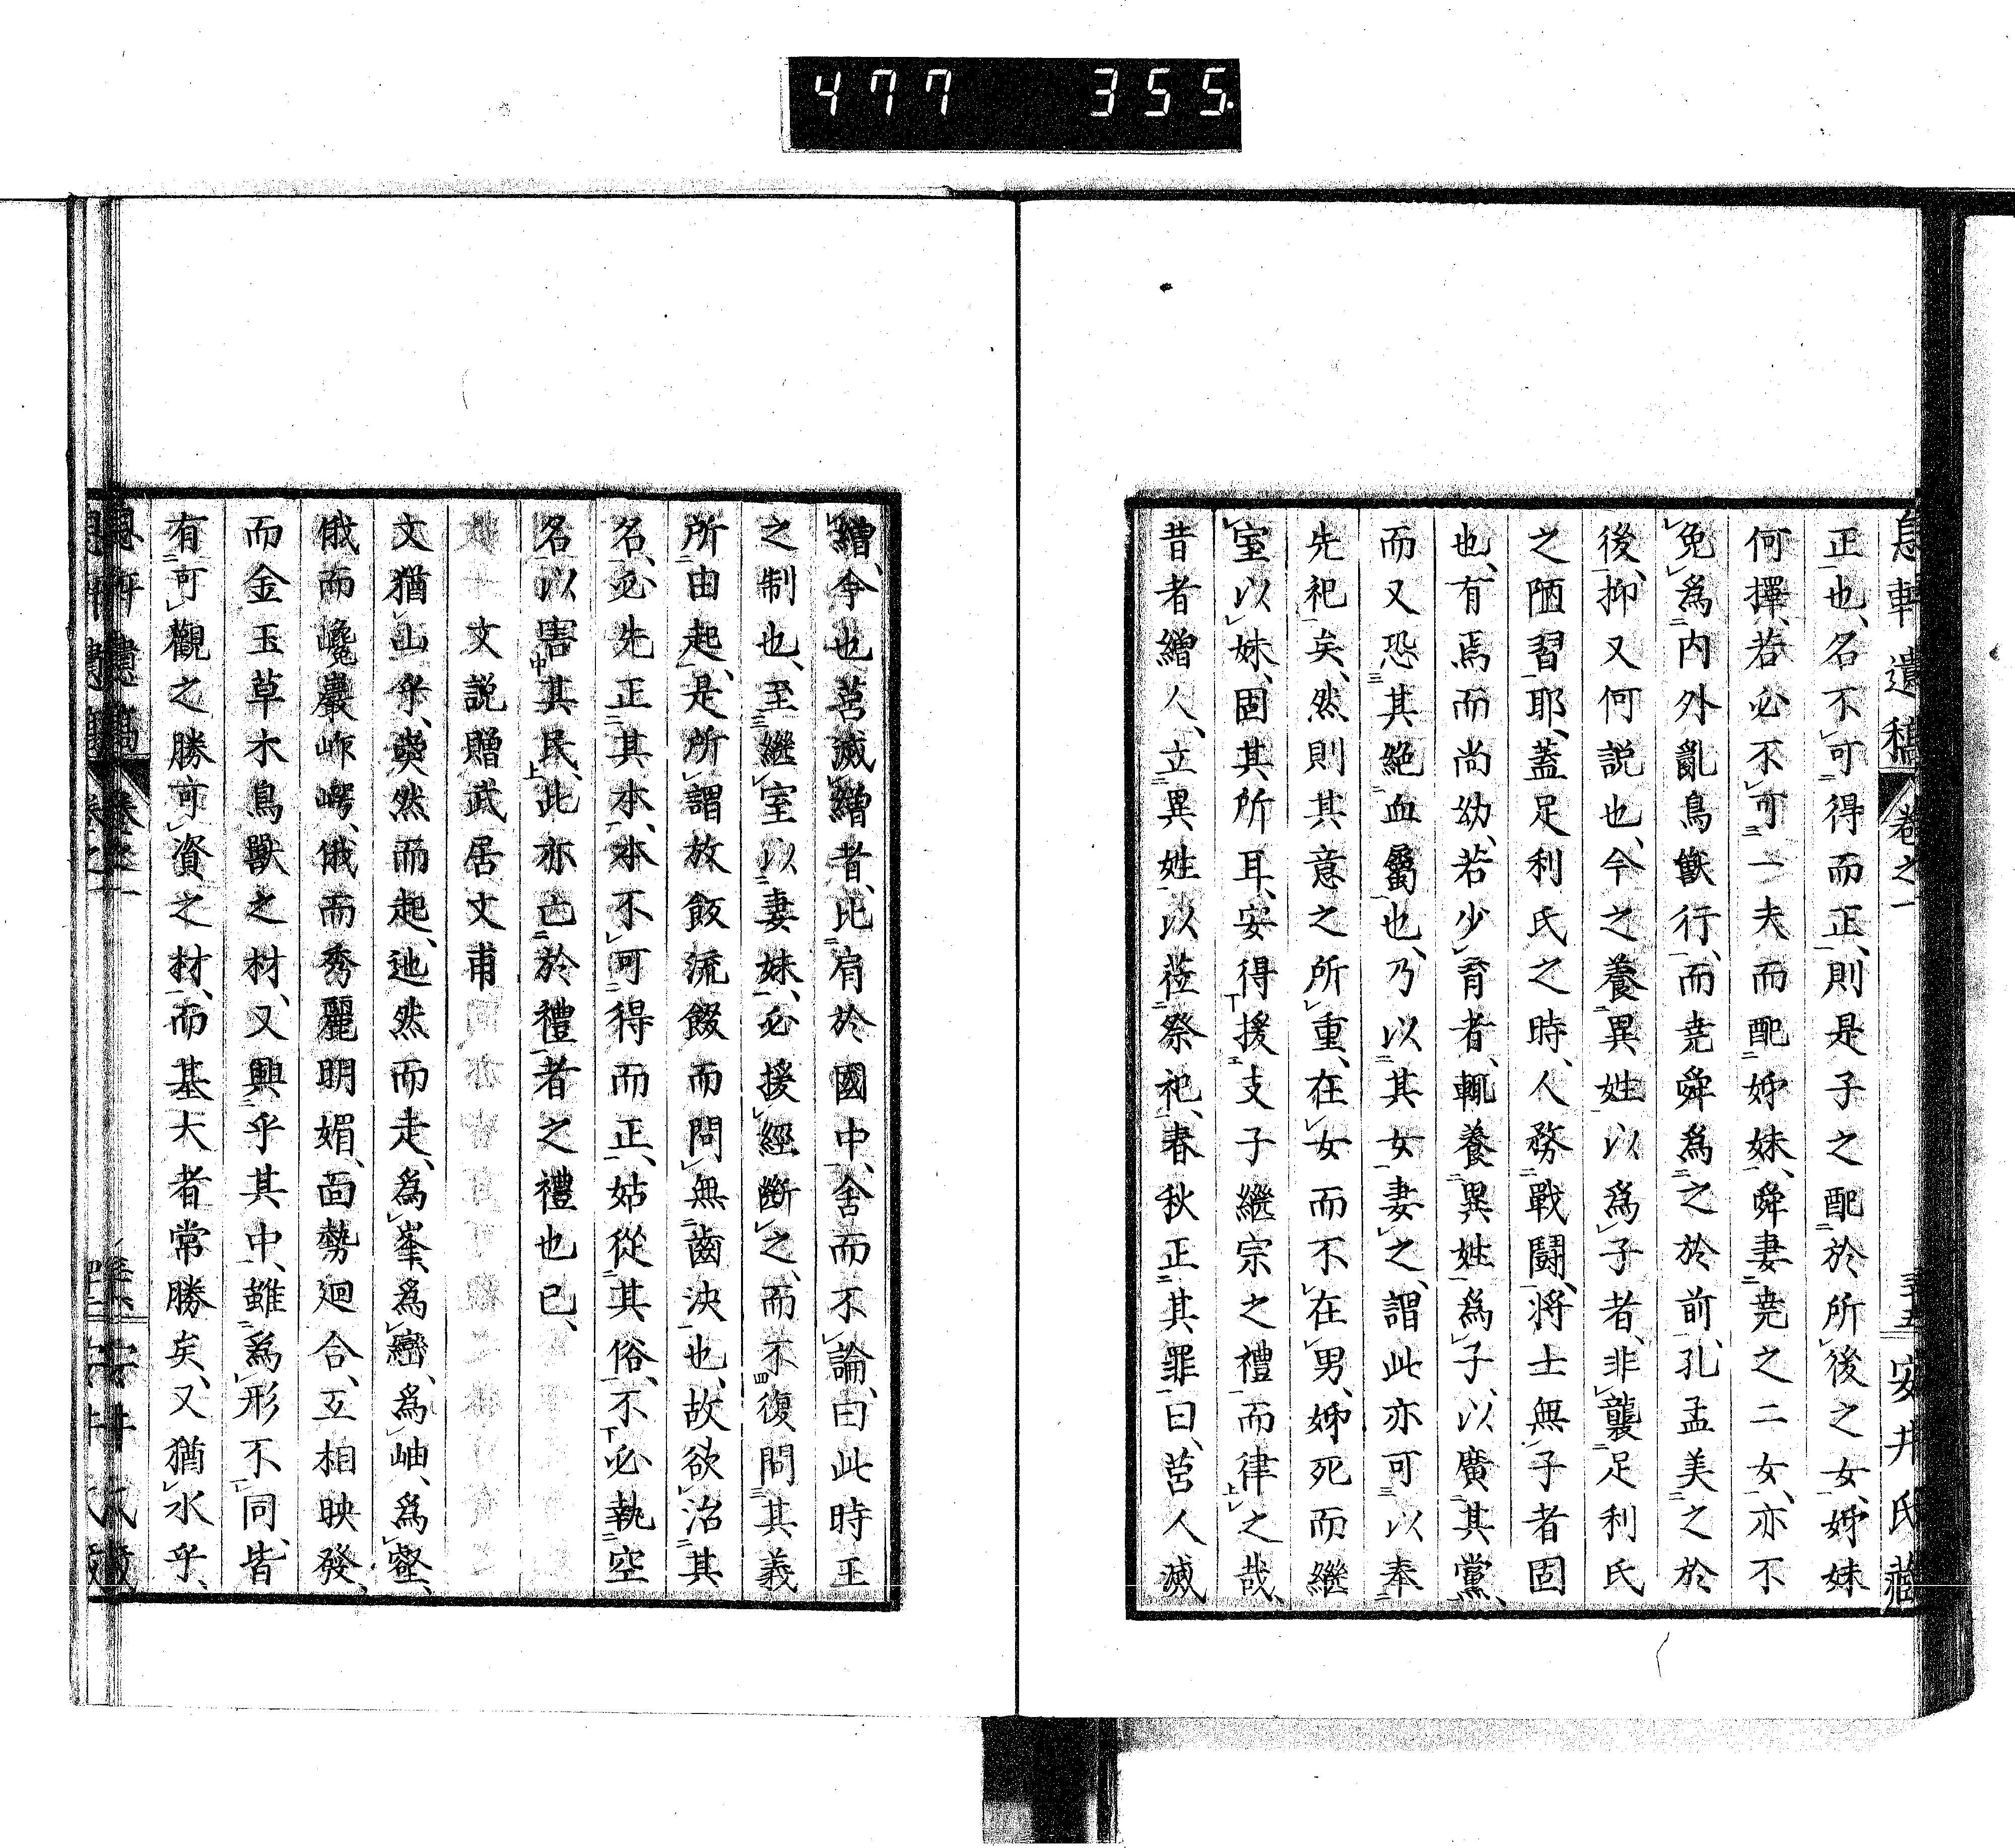 477 355.
息軒遺稿 卷之一 安井氏藏
正也、名不可得而正、則是子之配於所後之女、姉妹
何擇、若必不可一夫而配姉妹、舜妻堯之二女、亦不
免爲內外亂鳥獸行、而堯舜爲之於前、孔孟美之於
後、抑又何説也、今之養異姓以爲子者、非襲足利氏
之陋習耶、蓋足利氏之時、人務戰鬪、將士無子者固
也、有焉而尚幼、若少育者、輒養異姓爲子、以廣其黨、
而又恐其絕血屬也、乃以其女妻之、謂此亦可以奉
先祀矣、然則其意之所重、在女而不在男、姉死而繼
室以妹、固其所耳、安得援支子繼宗之禮而律之哉、
昔者繒人、立異姓以莅祭祀、春秋正其罪曰、莒人滅
繒、今也莒滅繒者、比肩於國中、舍而不論、曰此時王
之制也、至繼室以妻妹、必援經斷之、而不復問其義
所由起、是所謂放飯流歠而問無齒決也、故欲治其
名、必先正其本、本不可得而正、姑從其俗、不必執空
名以害其民、此亦亡於禮者之禮也已、
文説贈武居文甫
文猶山乎、突然而起、迤然而走、爲峯、爲巒、爲岫、爲壑、
俄而巉巖岞崿、俄而秀麗明媚、面勢廻合、互相映發、
而金玉草木鳥獸之材、又興乎其中、雖爲形不同、皆
有可觀之勝可資之材、而基大者常勝矣、又猶水乎、